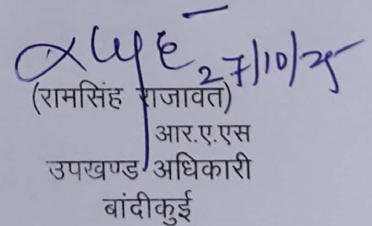 27/10/25
(रामसिंह राजावत)
आर.ए.एस
उपखण्ड अधिकारी
बांदीकुई